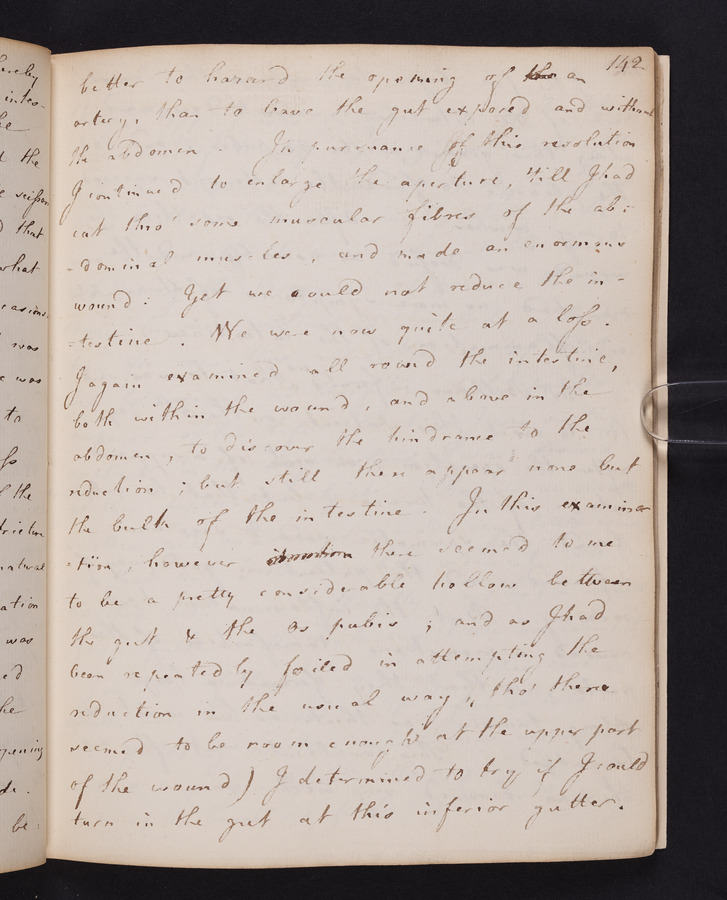 142
better to hazard the opening of the an
artery, than to leave the gut exposed and without
the abdomen. In pursuance of this resolution
I continued to enlarge the aperture, 'till I had
cut thro' some muscular fibres of the ab=
=dominal muscles, and made an enormous
wound. Yet we could not reduce the in-
=testine. We were now quite at a loss.
I again examined all round the intestine,
both within the wound, and above in the
abdomen, to discover the hindrance to the
reduction; but still there appear'd none but
the bulk of the intestine. In this examina
=tion, however there seemed to me
to be a pretty considerable hollow between
the gut & the Os pubis; and as I had
been repeatedly foiled in attempting the
reduction in the usual way, (tho' there
seemed to be room enough at the upper part
of the wound) I determined to try if I could
turn in the gut at this inferior gutter.
hereby
intes-
he
the
that
what
was
was
to
the
natural
ation
was
ed
he
opening
be